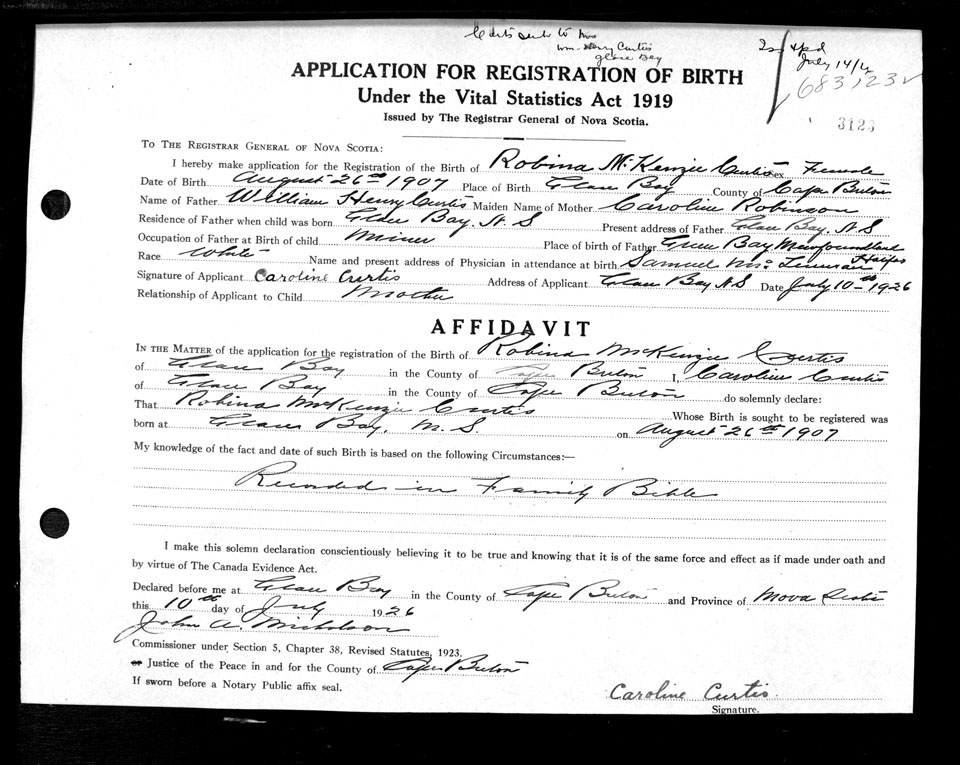 Certs sent to Mrs
Wm. Henry Curtis
Glace Bay
July 14/26
683123
3123
APPLICATION FOR REGISTRATION OF BIRTH
Under the Vital Statistics Act 1919
Issued by The Registrar General of Nova Scotia.
TO THE REGISTRAR GENERAL OF NOVA SCOTIA:
I hereby make application for the Registration of the Birth of Robina McKenzie Curtis Sex Female
Date of Birth August 26th 1907 Place of Birth Glace Bay County of Cape Breton
Name of Father William Henry Curtis Maiden Name of Mother Caroline Robinson
Residence of Father when child was born Glace Bay, N S Present address of Father Glace Bay, N S
Occupation of Father at Birth of child Miner Place of birth of Father Green Bay Newfoundland
Race White Name and present address of Physician in attendance at birth Samuel Halifax
Signature of Applicant Caroline Curtis Address of Applicant Glace Bay N S Date July 10th 1926
Relationship of Applicant to Child Mother
AFFIDAVIT
IN THE MATTER of the application for the registration of the Birth of Robina McKenzie Curtis
of Glace Bay in the County of Cape Breton I, Caroline Curtis
of Glace Bay in the County of Cape Breton do solemnly declare:
That Robina McKenzie Curtis Whose Birth is sought to be registered was
born at Glace Bay, N. S. on August 26th 1907
My knowledge of the fact and date of such Birth is based on the following Circumstances:—
Recorded in Family Bible
I make this solemn declaration conscientiously believing it to be true and knowing that it is of the same force and effect as if made under oath and
by virtue of The Canada Evidence Act.
Declared before me at Glace Bay in the County of Cape Breton and Province of Nova Scotia
this 10th day of July 1926
John A. Nicholson
Commissioner under Section 5, Chapter 38, Revised Statutes, 1923.
or Justice of the Peace in and for the County of Cape Breton
If sworn before a Notary Public affix seal.
Caroline Curtis
Signature.